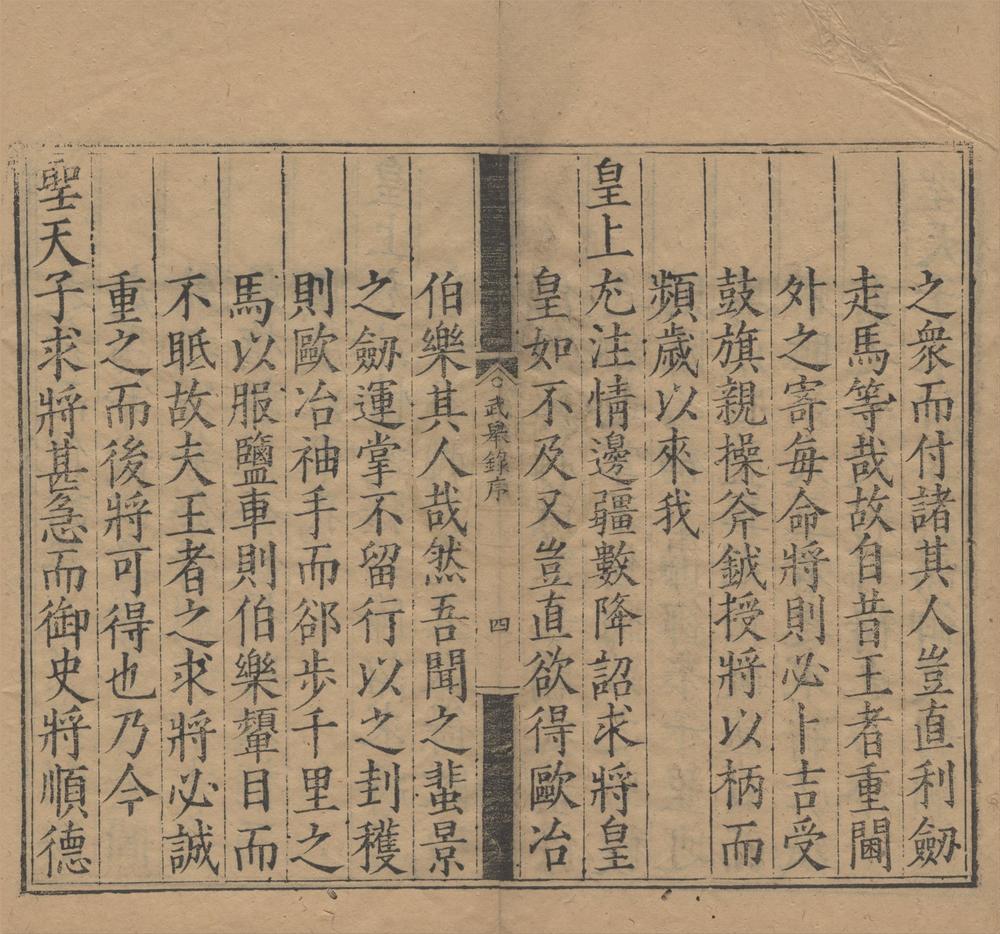 之衆而付諸其人豈直利劒
走馬等哉故自昔王者重閫
外之寄每命將則必卜吉受
鼓旗親操斧鉞授將以柄而
頻歲以來我
皇上尤注情邊疆數降詔求將皇
皇如不及又豈直欲得歐冶
武舉錄序
四
伯樂其人哉然吾聞之蜚景
之劒運掌不留行以之刲穫
則歐冶袖手而郤步千里之
馬以服鹽車則伯樂顰目而
不眂故夫王者之求將必誠
重之而後將可得也乃今
聖天子求將甚急而御史將順德